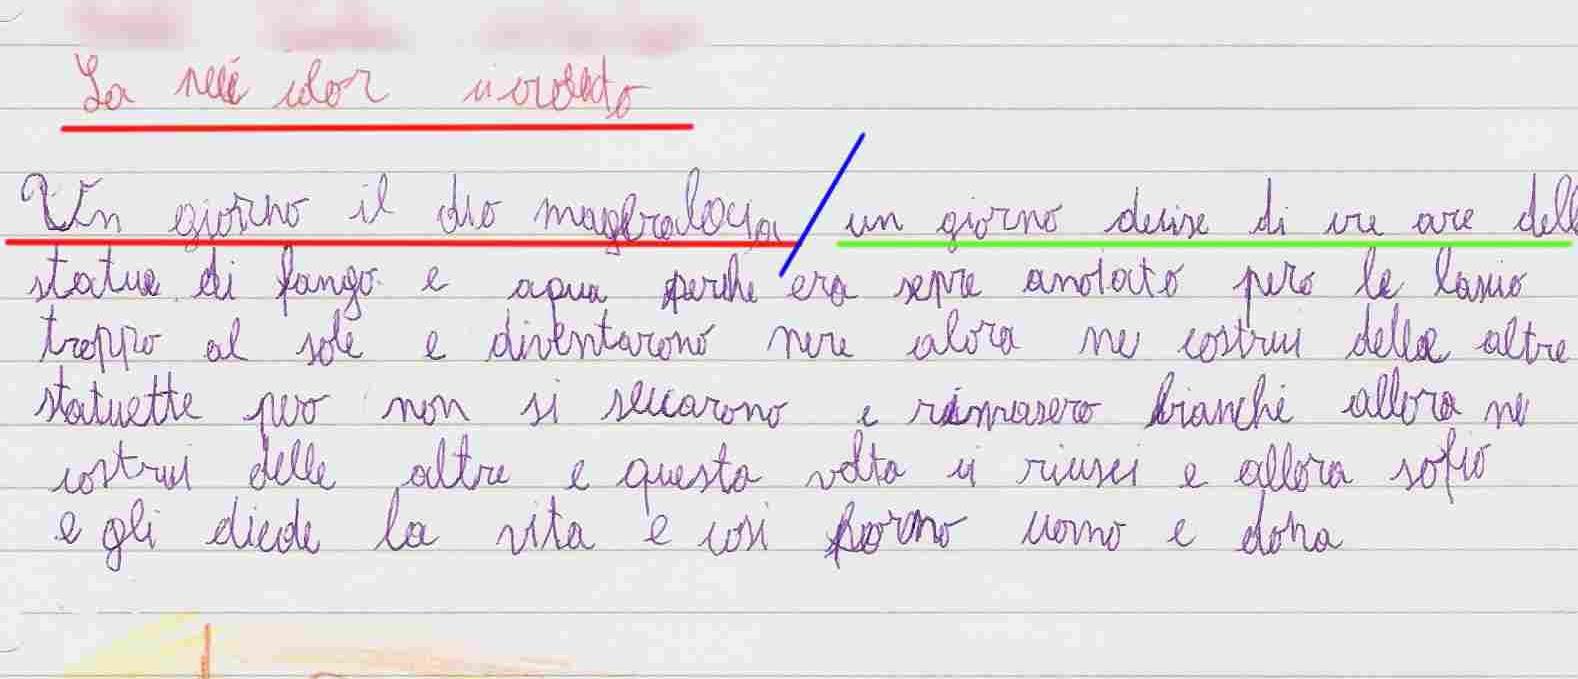 La
Un giorno il dio un giorno decise di delle
statue di fango e aqua perche era sepre anoiato pero le lascio
troppo al sole e diventarono nere alora ne costrui delle altre
statuette pero non si seccarono e rimasero bianche allora ne
costrui delle altre e questa volta ci riusci e allora sofio
e gli diede la vita e cosi uomo e dona